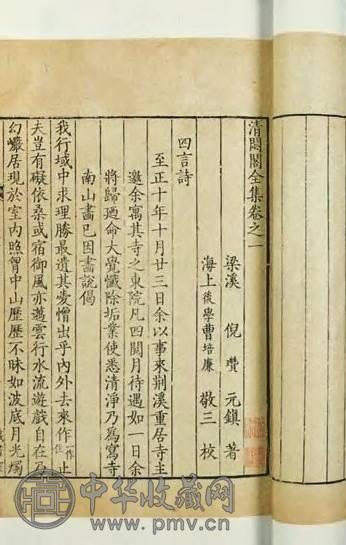 清閟閣全集卷之一
梁溪 倪瓚 元鎮 著
海上後學曹培廉 敬三 校
四言詩
至正十年十月廿三日余以事來荆溪重居寺主
邀余寓其寺之東院凡四閱月待遇如一日余
將歸迺命大覺懺除垢業使悉清淨乃為寫寺
南山畫已因畫說偈
我行域中求理勝最遺其愛憎出乎內外去來作止
夫豈有礙依桑或宿御風亦邁雲行水流遊戲自在乃
幻巖居現於室內照胷中山歷歷不昧如波底月光燭
中华收藏网
www.pmv.cn